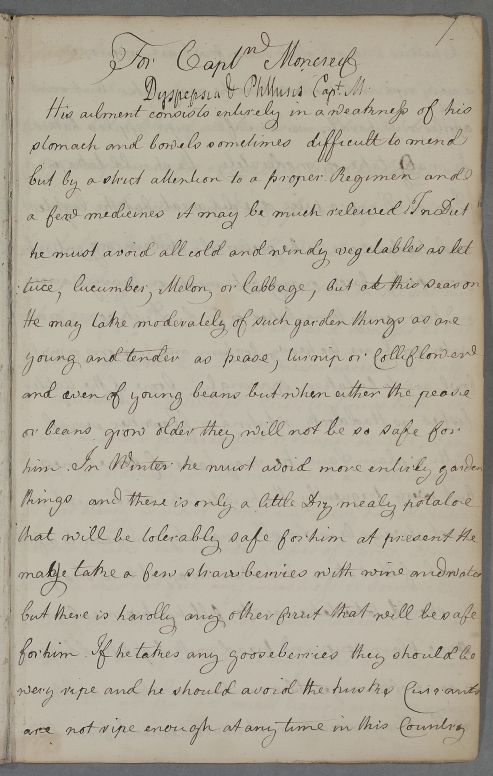 1
For Capt.nd Moncreef
Dyspepsia & Phthisis Capt. M.
His ailment consists entirely in a weakness of his
stomach and bowels sometimes difficult to mend
but by a strict attention to a proper Regimen and
a few medicines it may be much releived. In Diet
he must avoid all cold and windy vegetables as let
tuce, Cucumber, Melon, or Cabbage, but at this season
He may take moderately of such garden things as are
young and tender as pease, turnip or Colliflower
and even of young beans but when either the pease
or beans grow older they will not be so safe for
him. In Winter he must avoid more entirely garden
things and there is only a little Dry mealy potatoe
that will be tolerably safe for him at present He
may take a few strawberries with wine and water
but there is hardly any other fruit that will be safe
for him. If he takes any gooseberries they should be
very ripe and he should avoid the husks Currants
are not ripe enough at any time in this Country